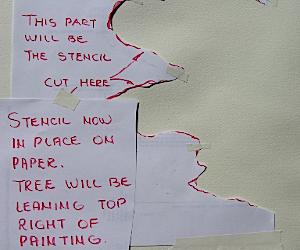 THIS PART
WILL BE
THE STENCIL
CUT HERE
STENCIL NOW
IN PLACE ON
PAPER.
TREE WILL BE
LEANING TOP
RIGHT OF
PAINTING.